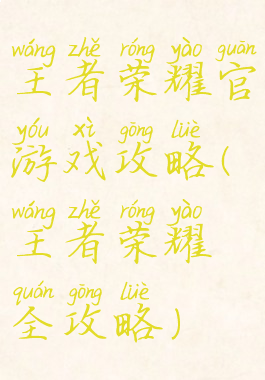 wáng zhě róng yào guān
王者荣耀官
yóu xì gōng lüè
游戏攻略(
wáng zhě róng yào
王者荣耀
quán gōng lüè
全攻略)